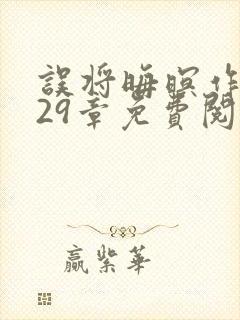 誤將晦暝作
29章免費閱
贏紫華